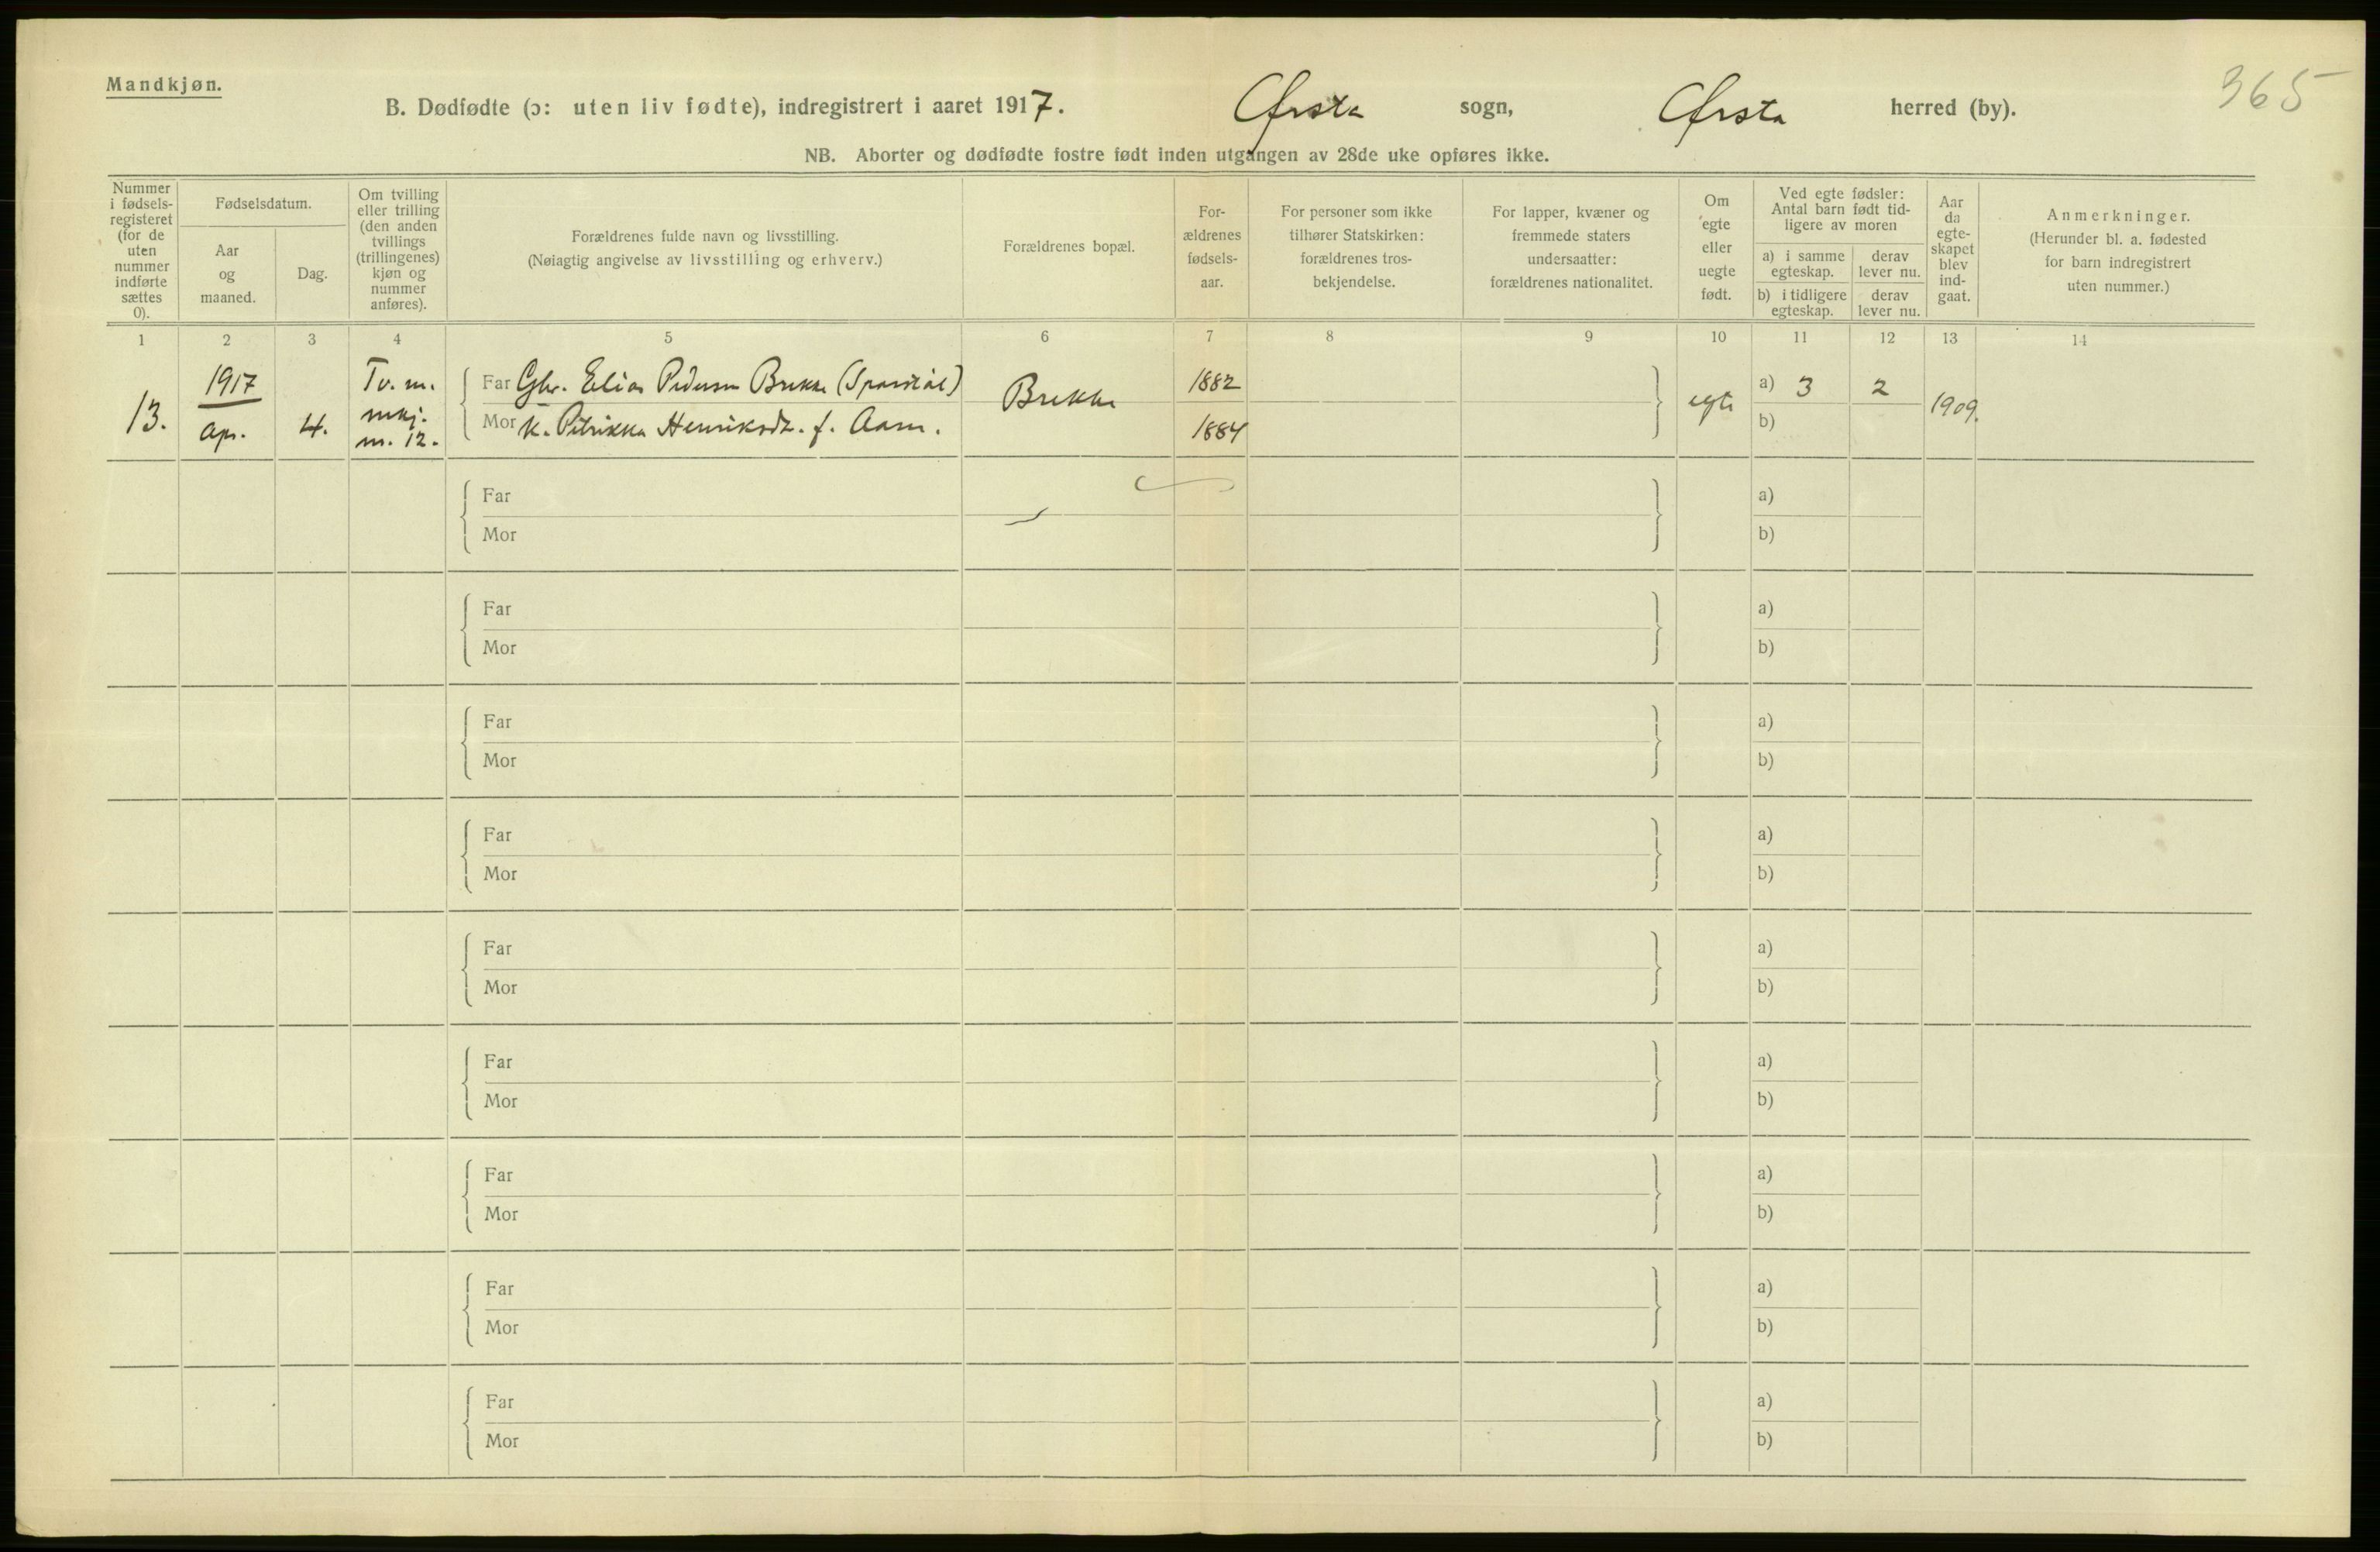 Mandkjøn.
365
B. Dødfødte (ɔ: uten liv fødte), indregistrert i aaret 1917. Ørsta sogn, Ørsta herred (by).
NB. Aborter og dødfødte fostre født inden utgangen av 28de uke opføres ikke.
Nummer i fødsels-registeret (for de uten nummer indførte sættes 0).
Fødselsdatum.
Aar og maaned.
Dag.
Om tvilling eller trilling (den anden tvillings (trillingenes) kjøn og nummer anføres).
Forældrenes fulde navn og livsstilling.
(Nøiagtig angivelse av livsstilling og erhverv.)
Forældrenes bopæl.
For-ældrenes fødsels-aar.
For personer som ikke tilhører Statskirken: forældrenes tros-bekjendelse.
For lapper, kvæner og fremmede staters undersaatter: forældrenes nationalitet.
Om egte eller uegte født.
Ved egte fødsler: Antal barn født tid-ligere av moren
a) i samme egteskap.
derav lever nu.
b) i tidligere egteskap.
derav lever nu.
Aar da egte-skapet blev ind-gaat.
Anmerkninger.
(Herunder bl. a. fødested for barn indregistrert uten nummer.)
1 2 3 4 5 6 7 8 9 10 11 12 13 14
13. 1917 apr. 4. Tv. m. mkj. m. 12.
Far Gbr. Elias Pedersen Brekke Brekke 1882 egte a) 3 2 1909.
Mor K. Petrikka Henriksdt. f. Aam. 1884 b)
Far a)
Mor b)
Far a)
Mor b)
Far a)
Mor b)
Far a)
Mor b)
Far a)
Mor b)
Far a)
Mor b)
Far a)
Mor b)
Far a)
Mor b)
Far a)
Mor b)